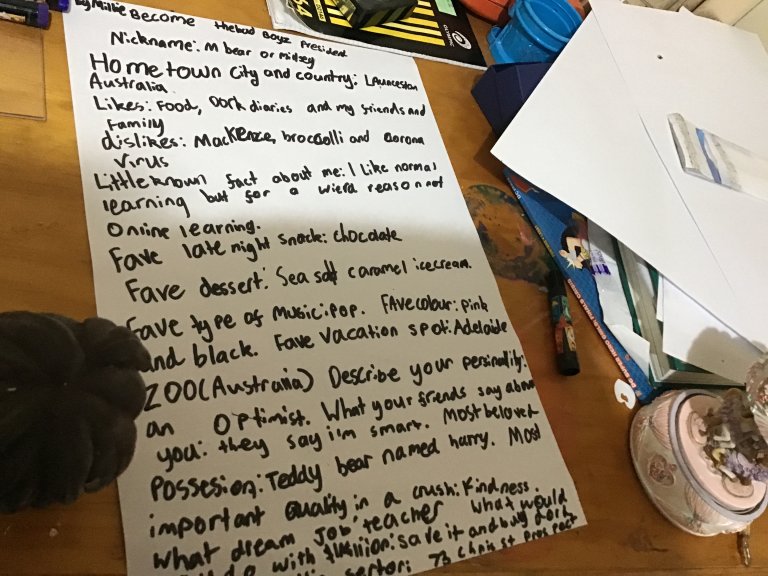 by Millie Become thebad Boyz President
Nickname: M bear or midzy
Hometown city and country: Launceston
Australia.
Likes: Food, Dork diaries and my friends and
family
dislikes: MacKenzie, broccolli and Corona
Virus
Little known fact about me: I like normal
learning but for a wierd reason not
Online learning.
Fave late night snack: chocolate
Fave dessert: Sea salt caramel icecream.
Fave type of music: pop. Fave colour: pink
and black. Fave vacation spot: Adelaide
ZOO (Australia) Describe your personality:
an Optimist. What your friends say about
you: they say i'm smart. Most beloved
Possesion: Teddy bear named harry. Most
important Quality in a crush: Kindness.
What dream Job: teacher What would
do with $1 million: save it and buy